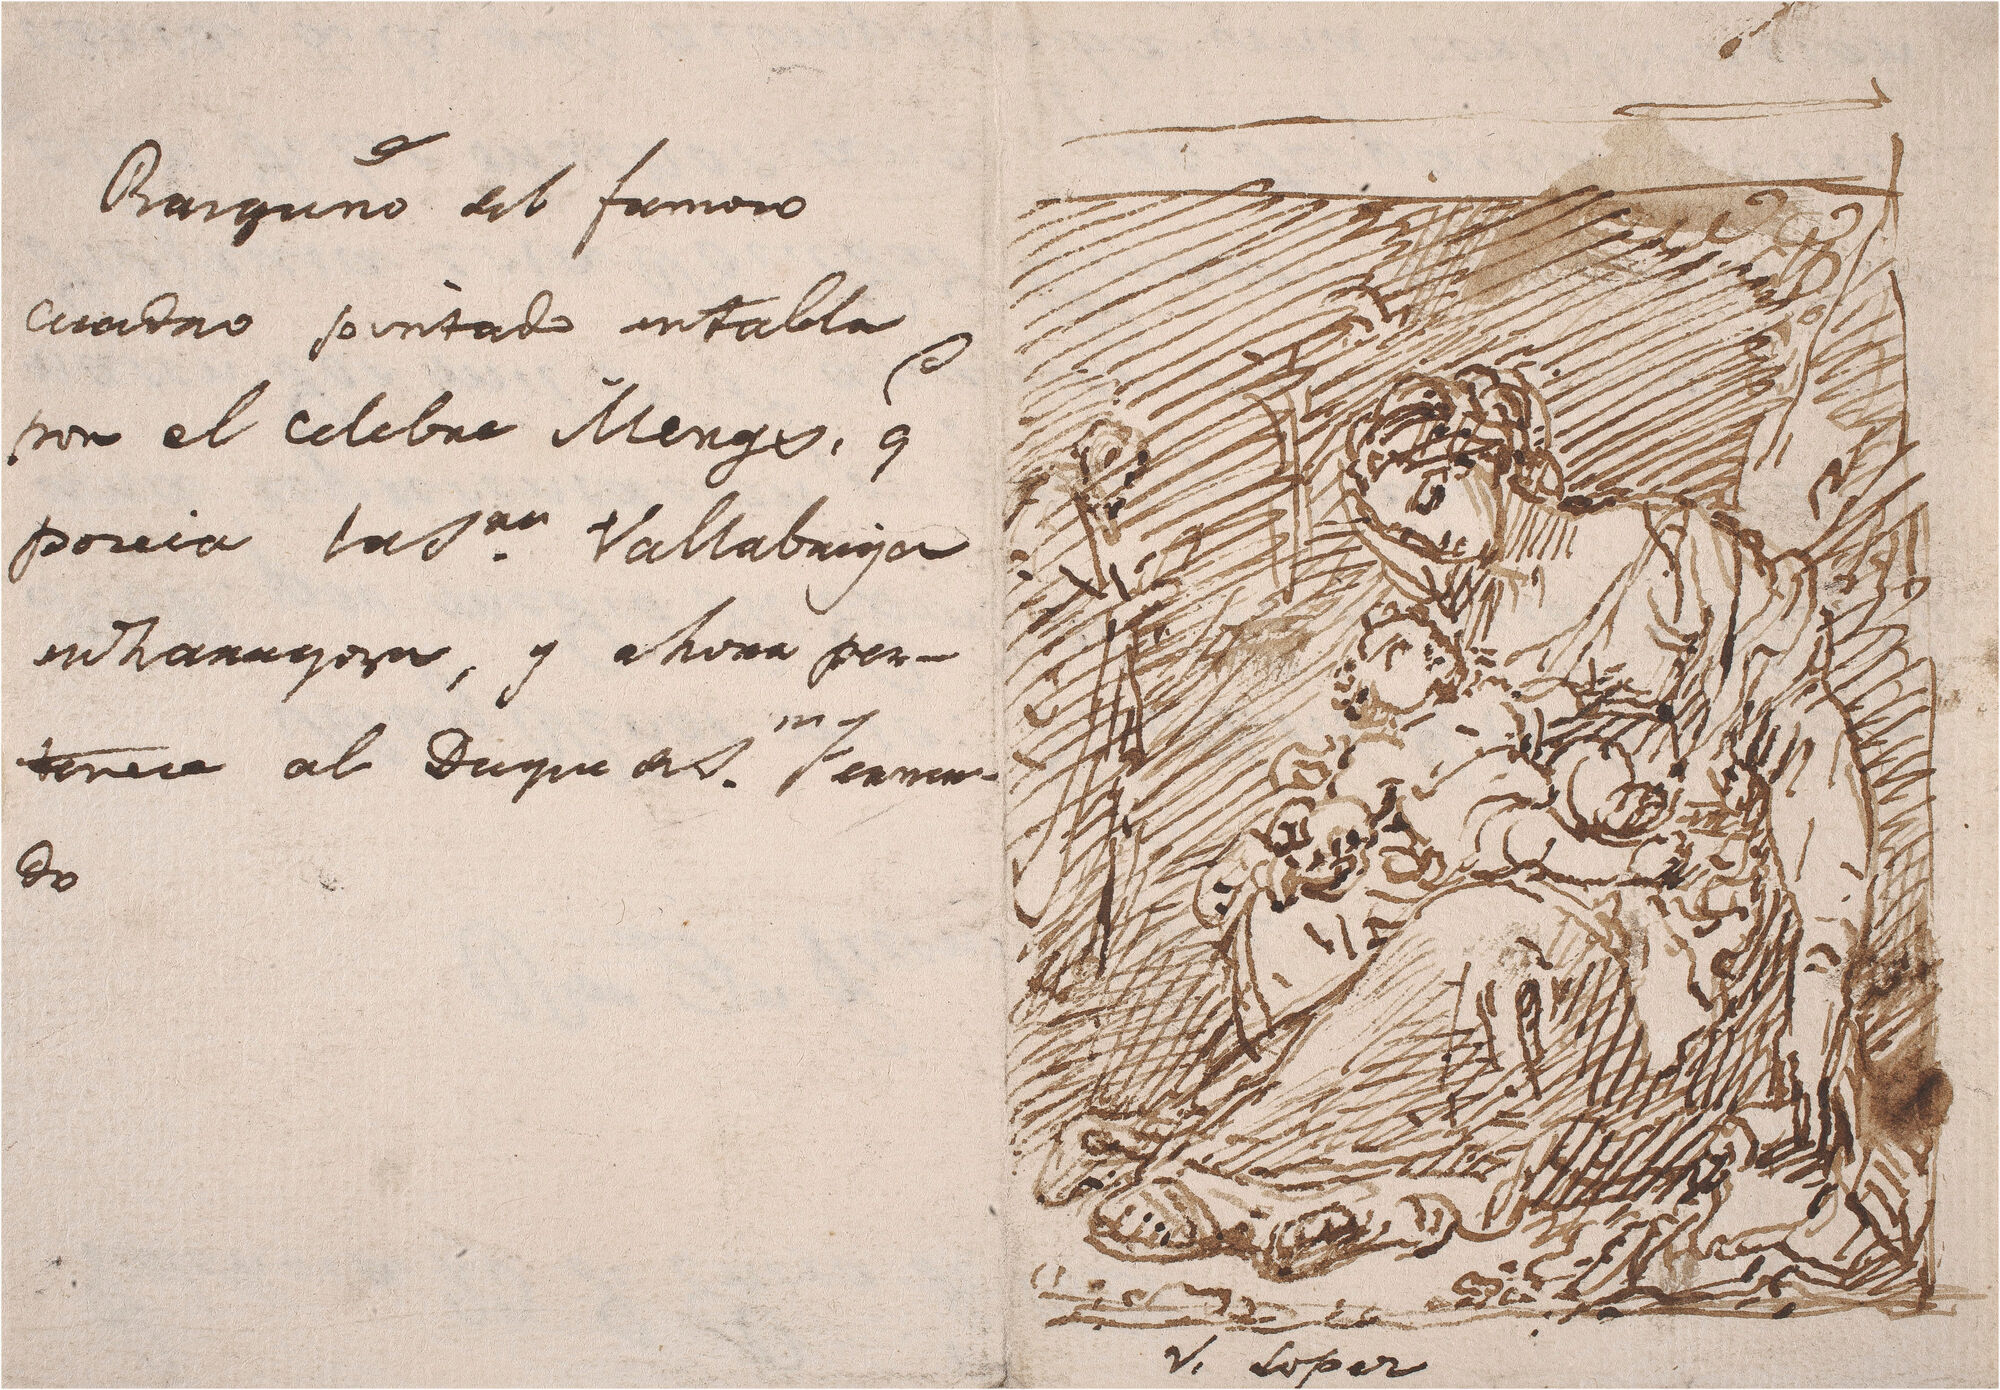 Rasguño del famoso
cuadro pintado en tabla
por el celebre Mengs, q.e
poseia la S.ra Vallabriga
en Zaragoza, y ahora per-
tenece al Duque de S.n Fernan-
do
V. Lopez